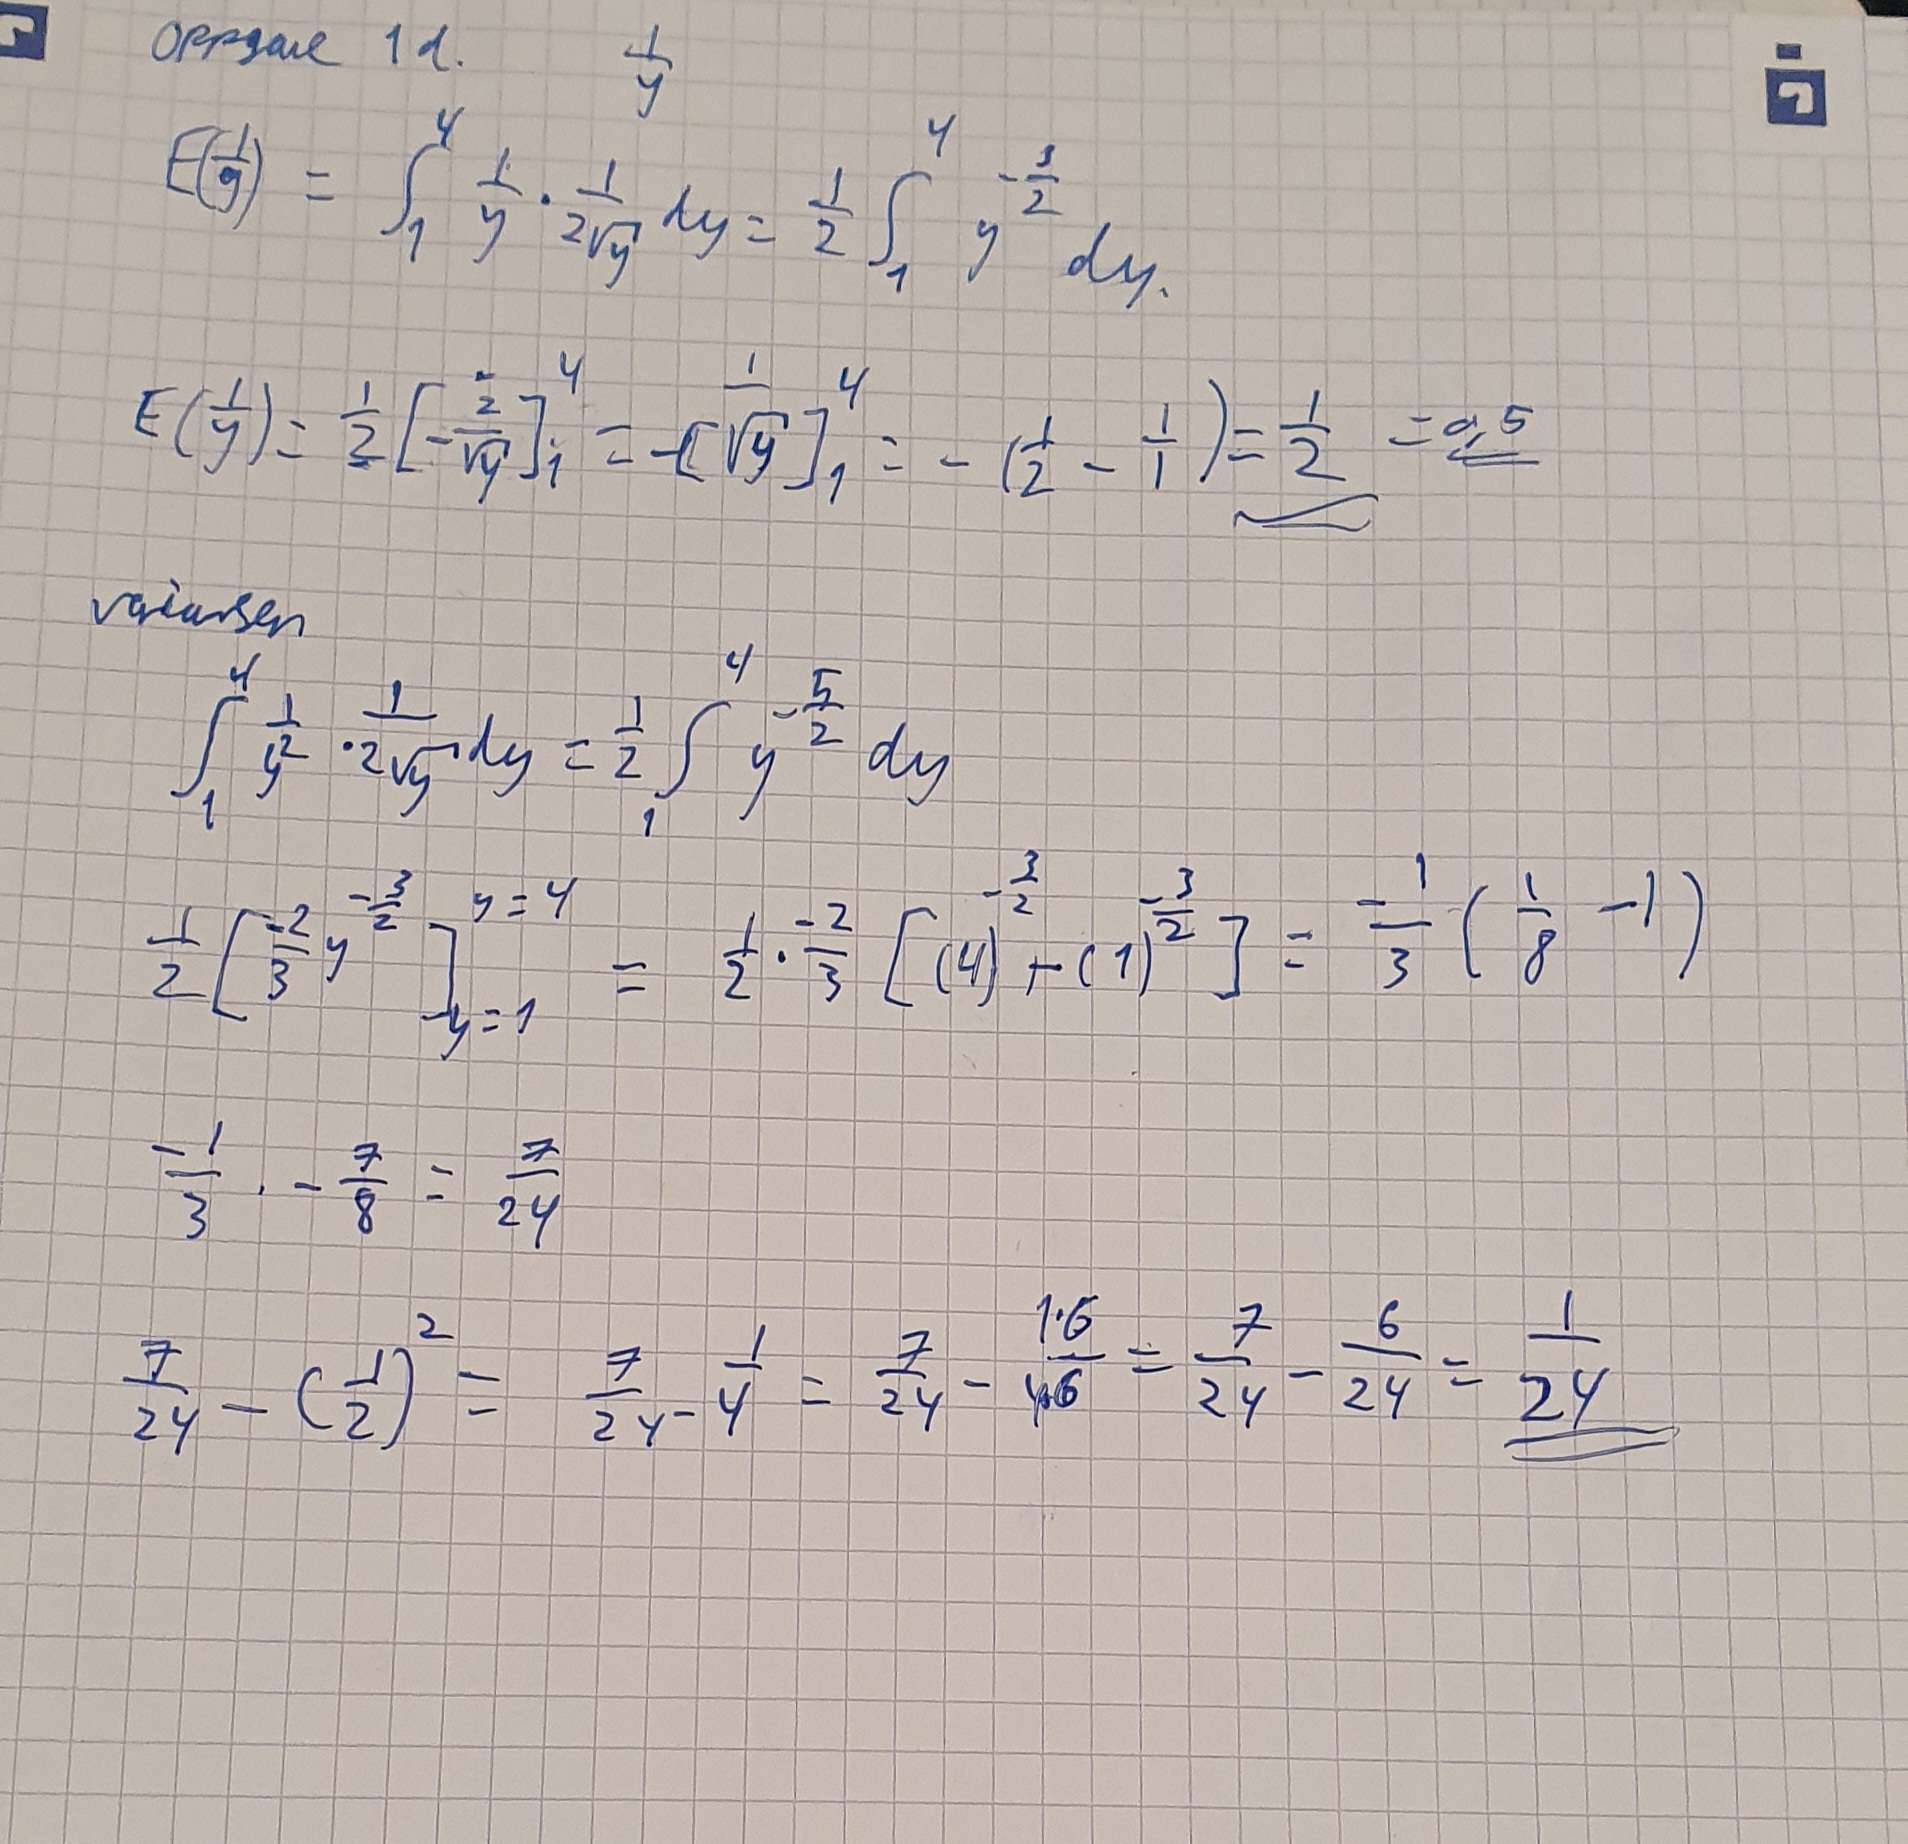 Oppgave 1d. 1/y
E(1/y) = ∫₁⁴ 1/y · 1/(2√y) dy = 1/2 ∫₁⁴ y^(-3/2) dy.
E(1/y) = 1/2 [-2/√y]₁⁴ = -[1/√y]₁⁴ = -(1/2 - 1/1) = 1/2 = 0,5
variansen
∫₁⁴ 1/y² · 1/(2√y) dy = 1/2 ∫₁⁴ y^(-5/2) dy
1/2 [-2/3 y^(-3/2)]_(y=1)^(y=4) = 1/2 · -2/3 [(4)^(-3/2) - (1)^(-3/2)] = -1/3 (1/8 - 1)
-1/3 · -7/8 = 7/24
7/24 - (1/2)² = 7/24 - 1/4 = 7/24 - 1·6/4·6 = 7/24 - 6/24 = 1/24